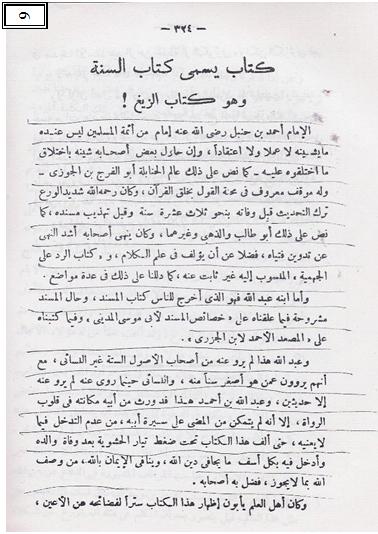 9
— ٣٢٤ —
كتاب يسمى كتاب السنة
وهو كتاب الزيغ !
الإمام أحمد بن حنبل رضى الله عنه إمام من أئمة المسلمين ليس عنده
ما يشينه لا عملا ولا اعتقاداً، وإن حاول بعض أصحابه شينه باختلاق
ما اختلقوه عليه - كما نص على ذلك عالم الحنابلة أبو الفرج بن الجوزى -
وله موقف معروف فى محنة القول بخلق القرآن، وكان رحمه الله شديد الورع
ترك التحديث قبل وفاته بنحو ثلاث عشرة سنة وقبل تهذيب مسنده، كما
نص على ذلك أبو طالب والذهبى وغيرهما، وكان ينهى أصحابه أشد النهى
عن تدوين فتياه، فضلا عن أن يؤلف فى علم الكلام، و« كتاب الرد على
الجهمية » المنسوب إليه غير ثابت عنه، كما دللنا على ذلك فى عدة مواضع .
وأما ابنه عبد الله فهو الذى أخرج للناس كتاب المسند، وحال المسند
مشروحة فيما علقناه على « خصائص المسند لأبى موسى المدينى » وفيما كتبناه
على « المصعد الأحمد لابن الجزرى » .
وعبد الله هذا لم يرو عنه من أصحاب الأصول الستة غير النسائى، مع
أنهم يروون عمن هو أصغر سناً منه، والنسائى حينما روى عنه لم يرو عنه
إلا حديثين، وعبد الله بن أحمد هذا قد ورث من أبيه مكانته فى قلوب
الرواة، إلا أنه لم يتمكن من المضى على سيرة أبيه، من عدم التدخل فيما
لا يعنيه، حتى ألف هذا الكتاب تحت ضغط تيار الحشوية بعد وفاة والده
وأدخل فيه بكل أسف ما يجافى دين الله، وينافى الإيمان بالله، من وصف
الله بما لا يجوز، فضل به أصحابه .
وكان أهل العلم يأبون إظهار هذا الكتاب ستراً لفضائحه عن الأعين،